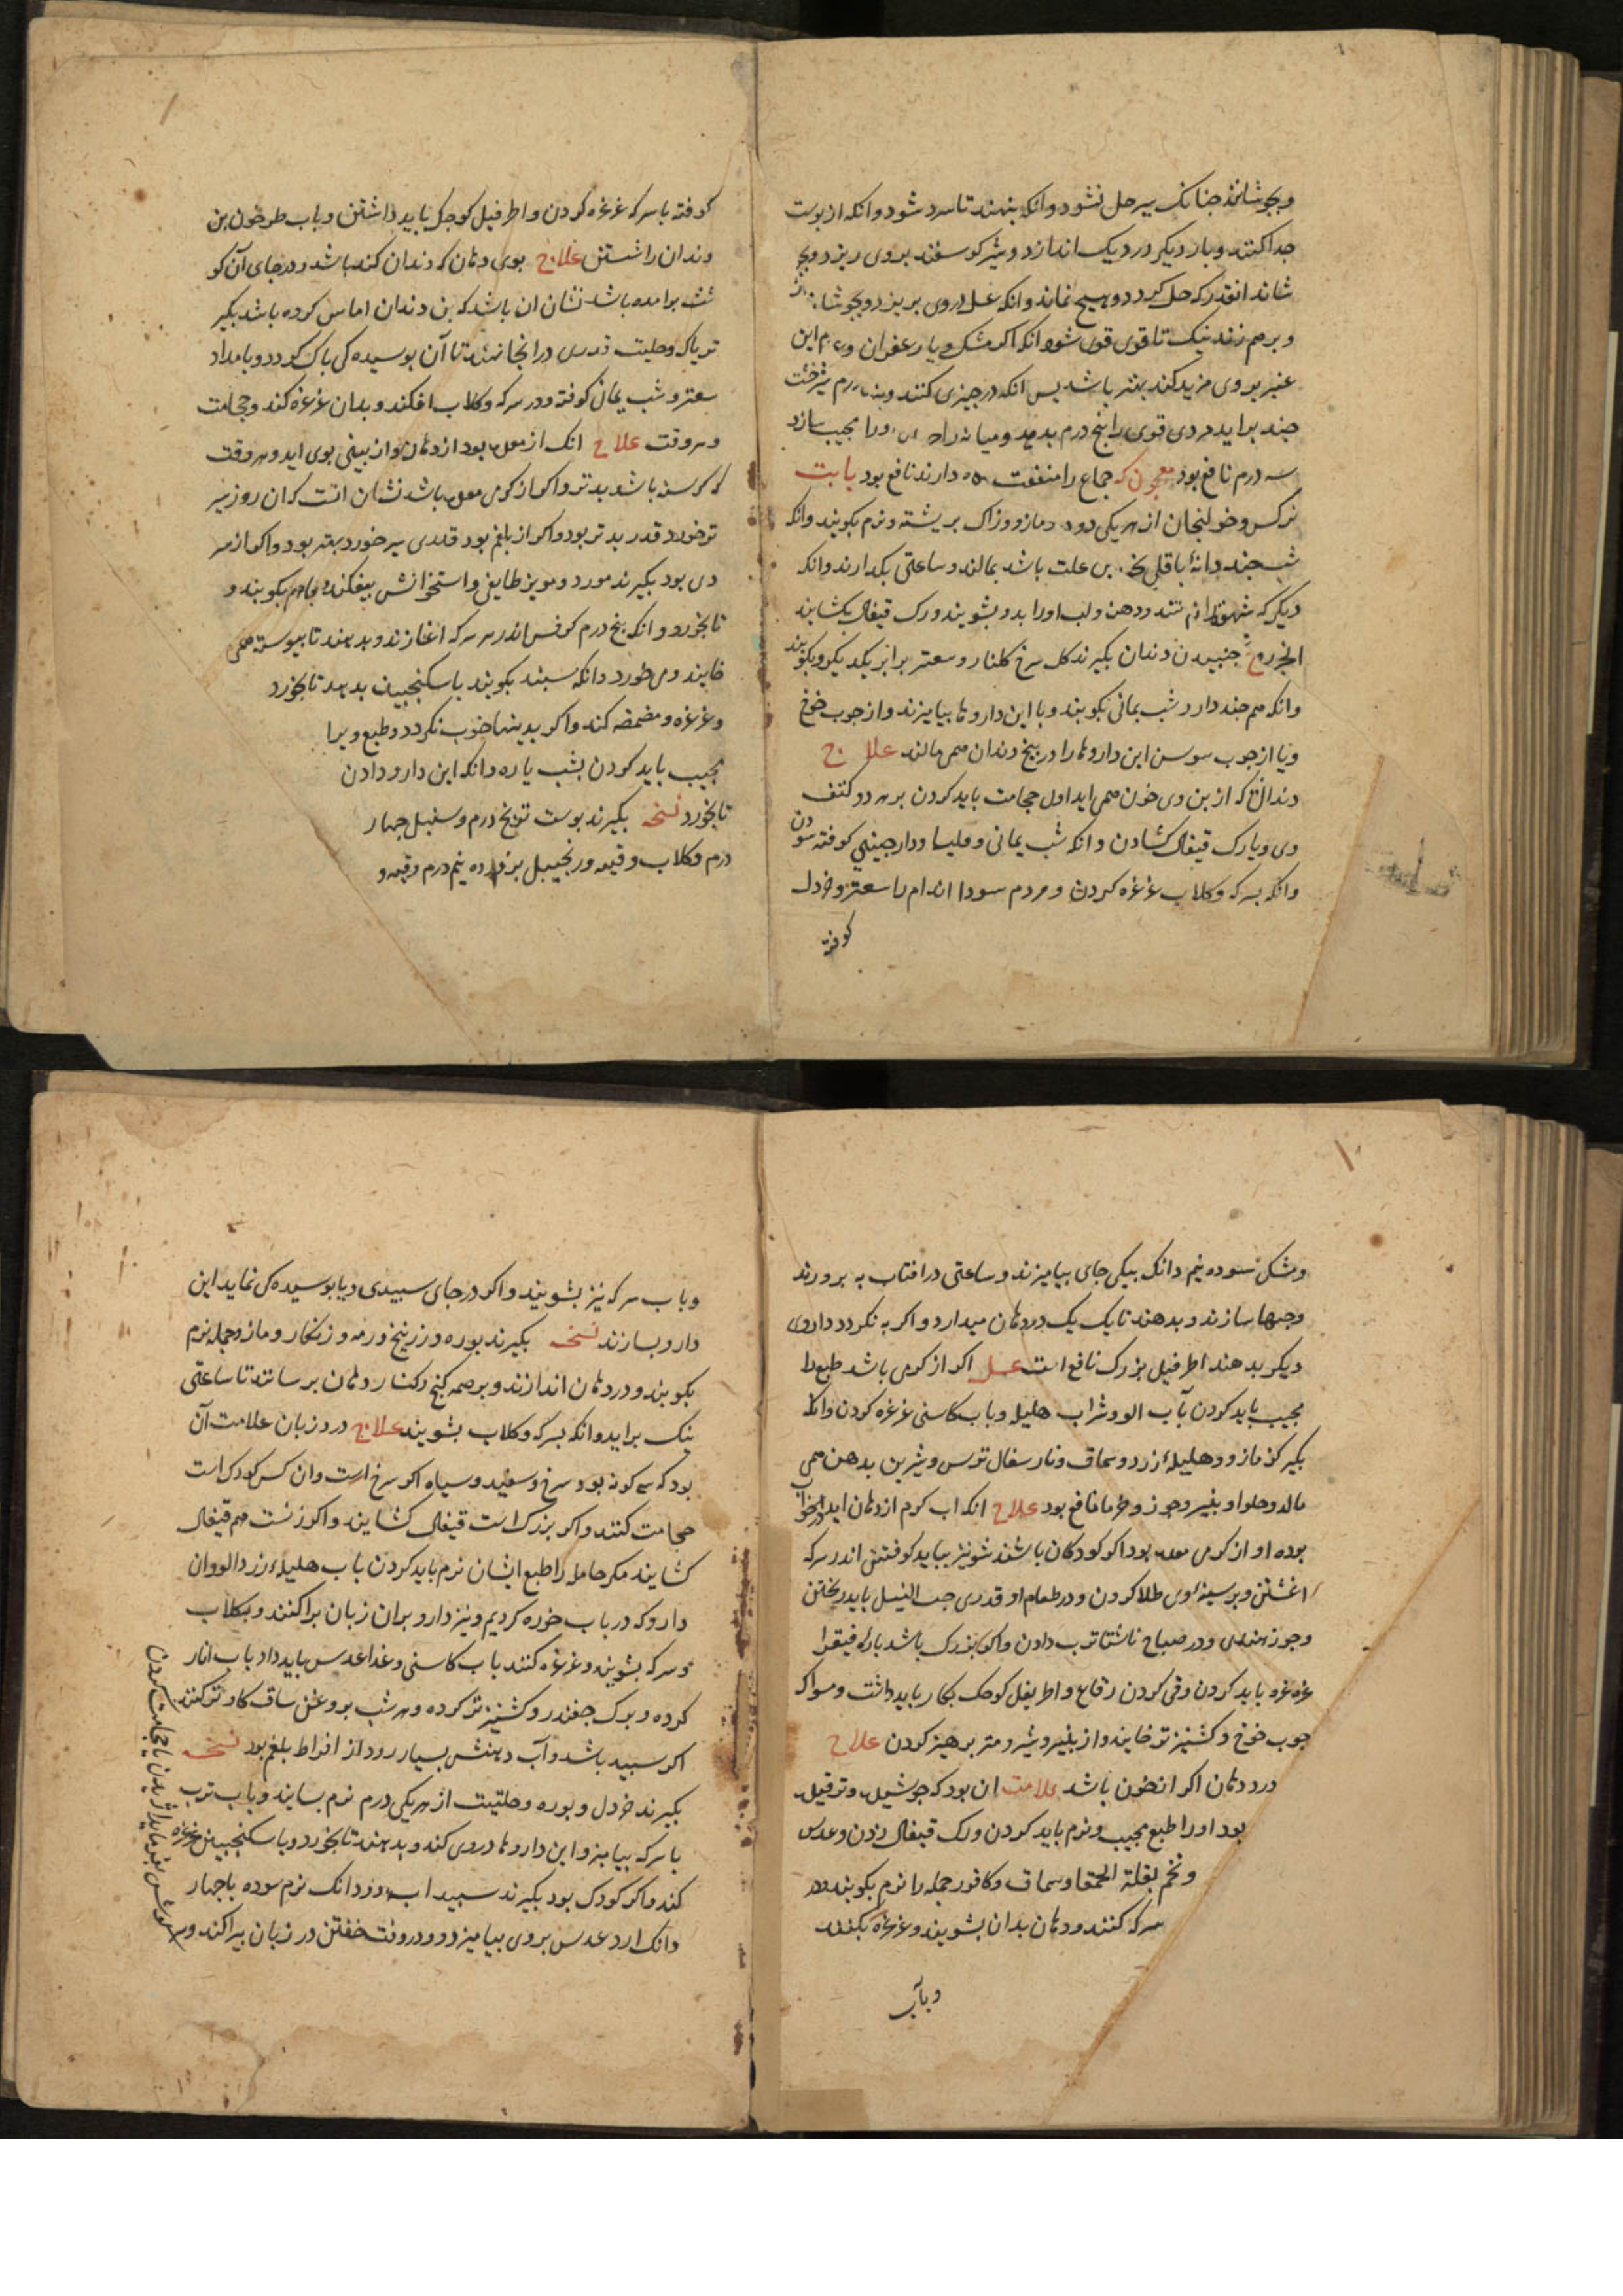 وبجوشانند جنانک سیر حل نشود وانکه بنهند تا سرد شود وانکه از بوست
جدا کنند وبار دیکر در دیک اندازد وشیر کوسفند بروی ریزد وبجو
شاند انقدر که حل کردد وهیچ نماند وانکه عسل بروی بریزد وبجوشاند
وبرهم زند نیک تا قوی قوی شود انکه اکر مشک ویا زعفران این
عنبر بروی مزید کند بهتر باشد بس انکه در جیزی کنند
جند براید مردی قوی را بنج درم بدهد ومیانه را ورا مجیب سازد
سه درم نافع بود معجون که جماع را منفعت دارند نافع بود یا بت
نرکس وخولنجان از هر یکی دود مازو وزاک بریشته ونرم بکوبند وانکه
شب جند دانهٔ باقلی علت باشد بمالند وساعتی بکدارند وانکه
دیکر که دهن ولب اورا بدو بشویند ورک قیفال بکشایند
جنبیدن دندان بکیرند کل سرخ کلنار وسعتر برابر یکدیکر وبکوبند
وانکه هم جند دارو شب یمانی بکوبند وبا این داروها بیامیزند واز جوب خوخ
ویا از جوب سوسن این داروها را در بیخ دندان همی مالند علاج
دندانی که از بن وی خون همی اید اول حجامت باید کردن بر هر دو کتف
وی ویا رک قیفال کشادن وانکه شب یمانی وملیسا ودارجینی کوفته سودن
وانکه بسرکه وکلاب غرغره کردن ومردم سودا اندام را سعتر وخردل
کوفته
کوفته با سرکه غرغره کردن واطریفل کوجک باید داشتن وباب طرخون بن
دندان را شستن علاج بوی دهان که دندان کنده باشد ودر جای آن کو
شت برامده باشد نشان ان باشد که بن دندان اماس کرده باشد بکیر
تریاک وحلتیت قدری در انجا نهند تا آن بوسیدهکی باک کردد وبامداد
سعتر وشب یمانی کوفته ودر سرکه وکلاب افکند وبدان غرغره کند وحجامت
وهر وقت علاج انک از معده بود از دهان واز بینی بوی اید وهر وقت
که کرسنه باشد بدتر واکر از کرمی معده باشد نشان انست که ان روز سیر
تر خورد قدر بدتر بود واکر از بلغم بود قدری سیر خورد بهتر بود واکر از سر
دی بود بکیرند مورد ومویز طایفی واستخوانش بیفکند وباهم بکوبند و
تا بخورد وانکه بنج درم کرفس اندر سرکه اغازند وبدهند تا بیوسته همی
خایند ومی خورد وانکه سبند بکوبند با سکنجبین بدهد تا بخورد
وغرغره ومضمضه کند واکر بدینها خوب نکردد وطبع ویرا
مجیب باید کردن بشب یاره وانکه این دارو دادن
تا بخورد نسخه بکیرند بوست ترنج درم وسنبل جهار
درم وکلاب وقیه وزنجبیل نیم درم وقیه و
ومشک سوده نیم دانک بیکی جای بیامیزند وساعتی در افتاب به برورند
وحبها سازند وبدهند تا یک یک در دهان میدارد واکر به نکردد داروی
دیکر بدهند اطریفل بزرک نافع است عسل اکر از کرمی باشد طبع را
مجیب باید کردن بآب الو وشراب هلیله وباب کاسنی غرغره کردن وانکه
بکیر کزمازو وهلیلهٔ زرد وسماق ونار سفال ترس وشیرین بدهن همی
مالد وحلوا وبنیر وجوز وخرما نافع بود علاج انکه اب کرم از دهان اید در خواب
بوده او از کرمی معده بود اکر کودکان باشند شونیز بباید کوفتن اندر سرکه
اغشتن وبر سینهٔ وی طلا کردن ودر طعام او قدری حب النیل باید ریختن
وجوز هندی ودر صباح ناشتا ترب دادن واکر بزرک باشد بارهٔ فیقرا
غرغره باید کردن وقی کردن واطریفل کوجک بکار باید داشت ومسواک
جوب خوخ وکشنیز تر خایند واز بنیر وشیر ومتر برهیز کردن علاج
درد دهان اکر از خون باشد علامت ان بود که
بود اورا طبع مجیب ونرم باید کردن ورک قیفال زدن وعدس
وتخم بقلة الحمقا وسماق وکافور جمله را نرم بکوبند ودر
سرکه کنند ودهان بدان بشویند وغرغره بکنند
وبآب
وباب سرکه نیز بشویند واکر در جای سبیدی ویا بوسیدهکی نماید این
دارو بسازند نسخه بکیرند بوره وزرنیخ وزنکار ومازو جمله نرم
بکوبند ودر دهان اندازند وبر همه کنج وکنار دهان برسانند تا ساعتی
نیک براید وانکه بسرکه وکلاب بشویند علاج درد زبان علامت آن
بود که سه کونه بود سرخ وسفید وسیاه اکر سرخ است وان کس کودک است
حجامت کنند واکر بزرک است قیفال کشایند واکر زنست هم قیفال
کشایند مکر حامله را طبع ایشان نرم باید کردن باب هلیلهٔ زرد الو وان
دارو که در باب خوره کردیم ونیز دارو بران زبان براکنند وبکلاب
وسرکه بشویند وغرغره کنند باب کاسنی وغذا عدس باید داد باب انار
کرده وبرک جغندر وکشنیز تر کرده وهر شب بروغن ساق کاو تر کنند
اکر سبید باشد وآب دهنش بسیار رود از افراط بلغم بود نسخه
بکیرند خردل وبوره وحلتیت از هر یکی درم نرم بسایند وباب ترب
با سرکه بیامیزد واین داروها در وی کند وبدهند تا بخورد وبا سکنجبین غرغره
کند واکر کودک بود بکیرند سبیداب دو دانک نرم سوده با جهار
دانک ارد عدس بروی بیامیزد ودر وقت خفتن در زبان بیراکند وسر